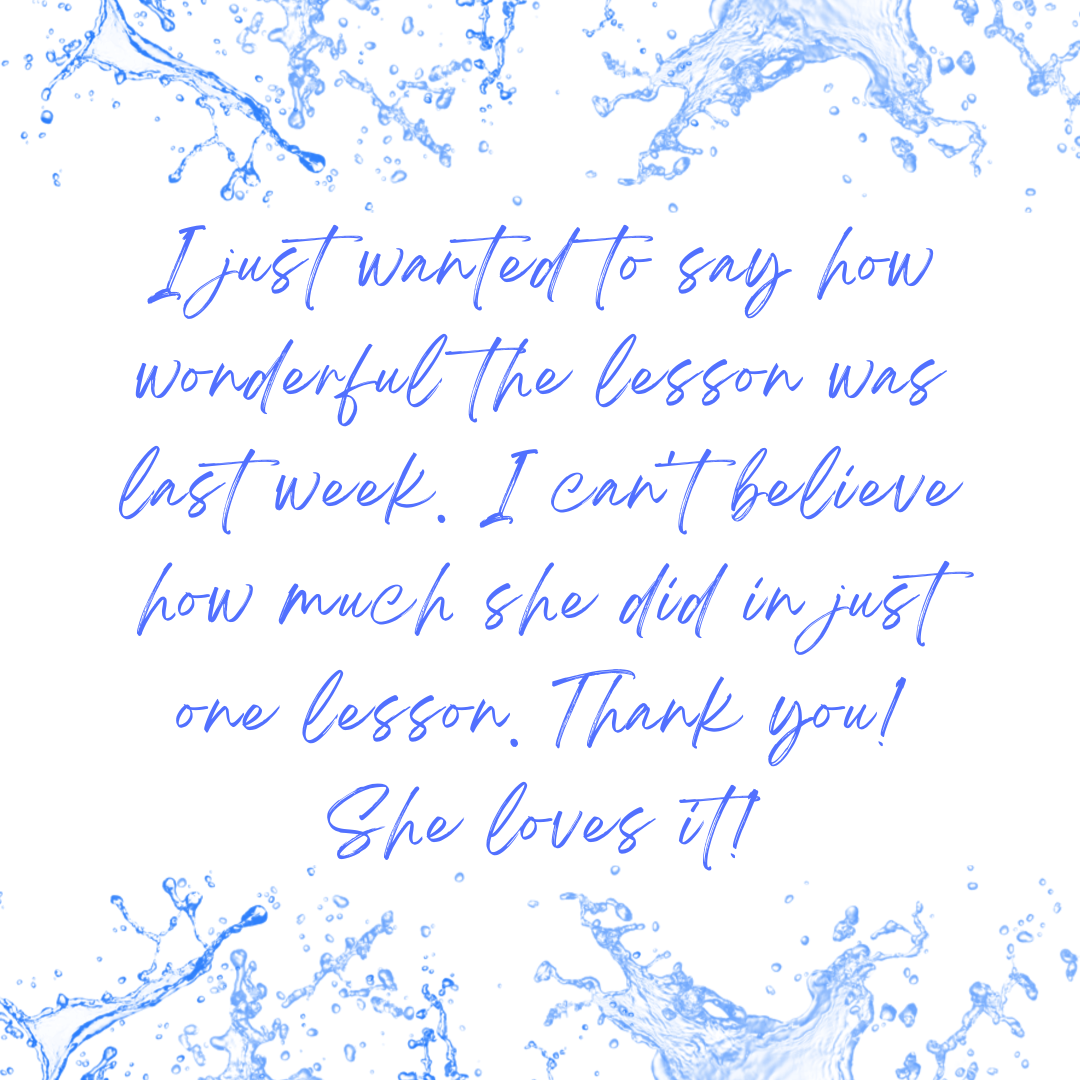 I just wanted to say how
wonderful the lesson was
last week. I can't believe
how much she did in just
one lesson. Thank you!
She loves it!